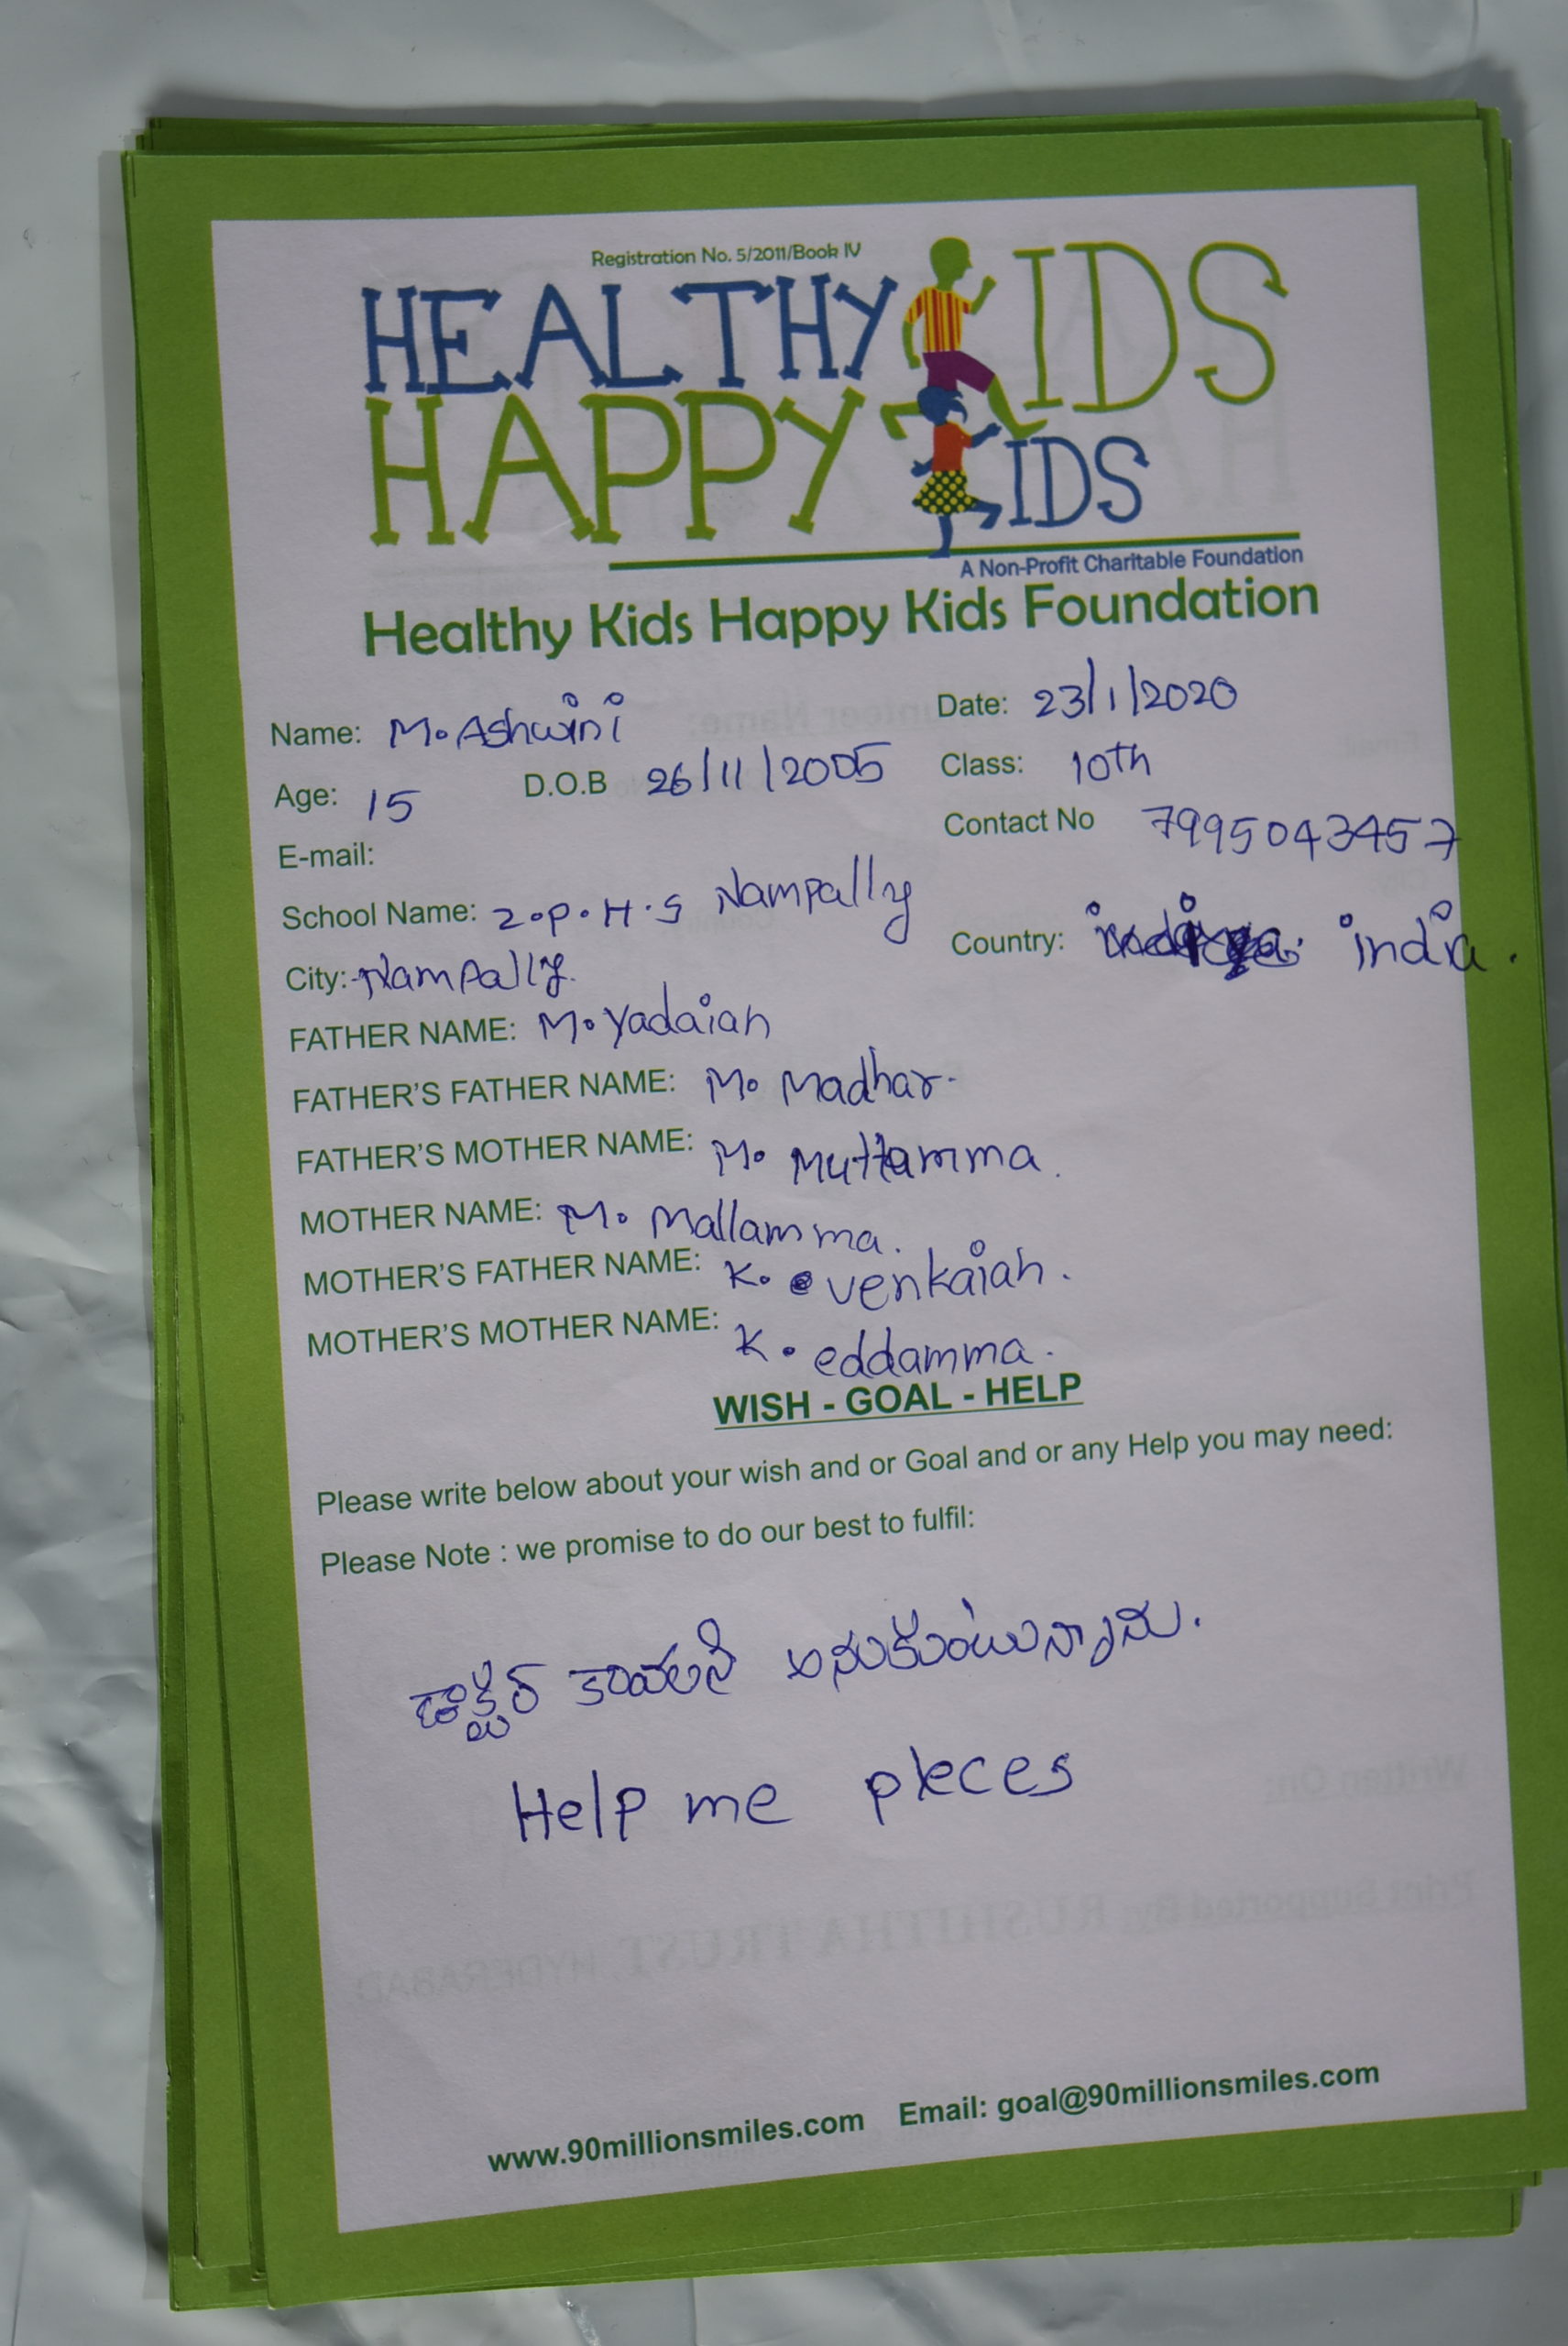 Registration No. 5/2011/Book IV
HEALTHY KIDS
HAPPY KIDS
A Non-Profit Charitable Foundation
Healthy Kids Happy Kids Foundation
Name: M. Ashwini Date: 23/1/2020
Age: 15 D.O.B 26/11/2005 Class: 10th
E-mail: Contact No 7995043457
School Name: Z.P.H.S Nampally
City: Nampally. Country: india.
FATHER NAME: M. Yadaiah
FATHER'S FATHER NAME: M. Madhar.
FATHER'S MOTHER NAME: M. Muttamma.
MOTHER NAME: M. Mallamma.
MOTHER'S FATHER NAME: K. venkaiah.
MOTHER'S MOTHER NAME: K. eddamma.
WISH - GOAL - HELP
Please write below about your wish and or Goal and or any Help you may need:
Please Note : we promise to do our best to fulfil:
డాక్టర్ కావలని అనుకుంటున్నాను.
Help me pleces
www.90millionsmiles.com Email: goal@90millionsmiles.com